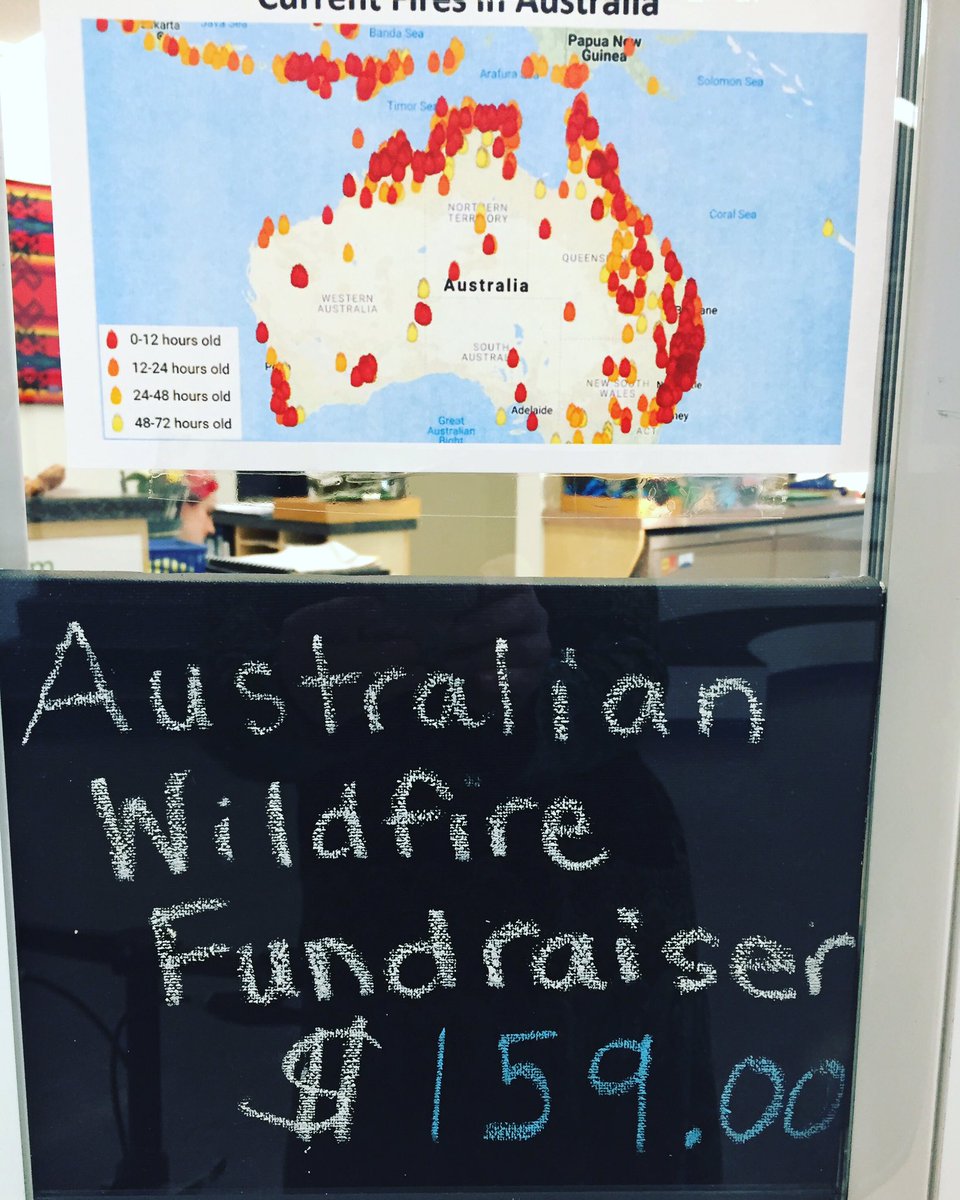 Current Fires in Australia
Java Sea
karta
Banda Sea
Papua New
Guinea
Arafura
Solomon Sea
Timor Sea
NORTHERN
TERRITORY
Coral Sea
QUEENS
Australia
WESTERN
AUSTRALIA
0-12 hours old
12-24 hours old
24-48 hours old
48-72 hours old
SOUTH
AUSTRAL
NEW SOUTH
WALES
ney
Adelaide
Great
Australian
Bight
ACT
Australian
Wildfire
Fundraiser
$ 159.00